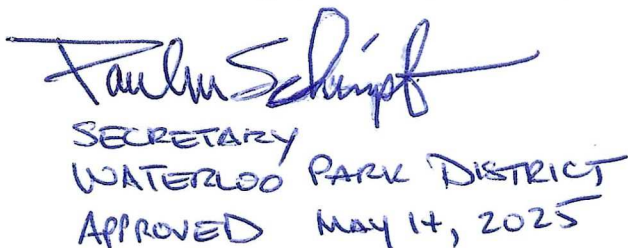 Schimpf
SECRETARY
WATERLOO PARK DISTRICT
APPROVED MAY 14, 2025